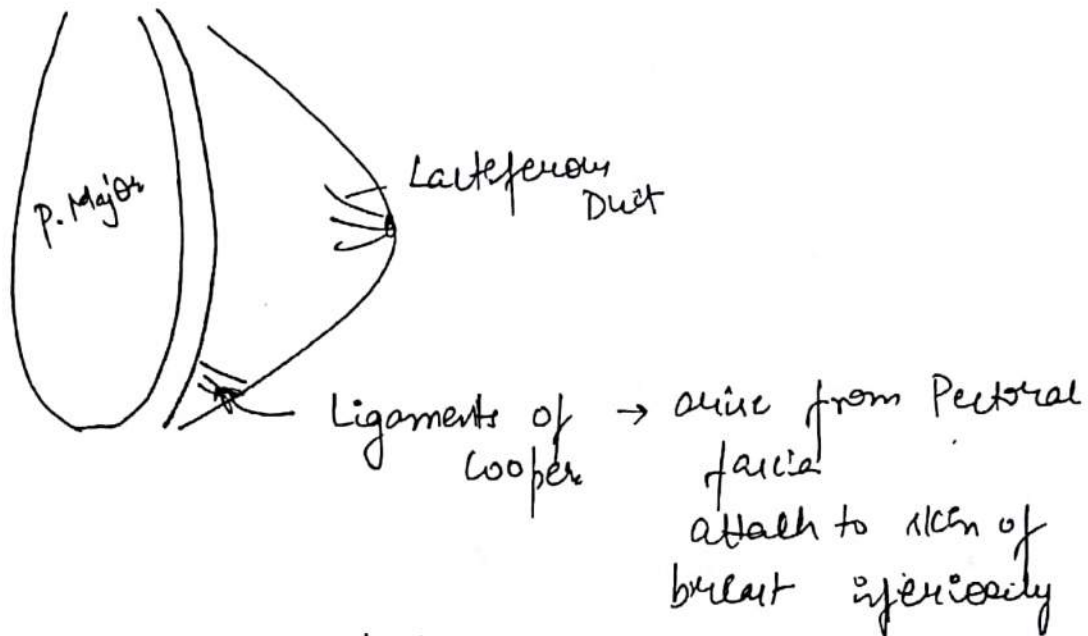 P. Major
Lacteferous
Duct
Ligaments of → arise from Pectoral
Cooper fascia
attach to skin of
breast inferiorly